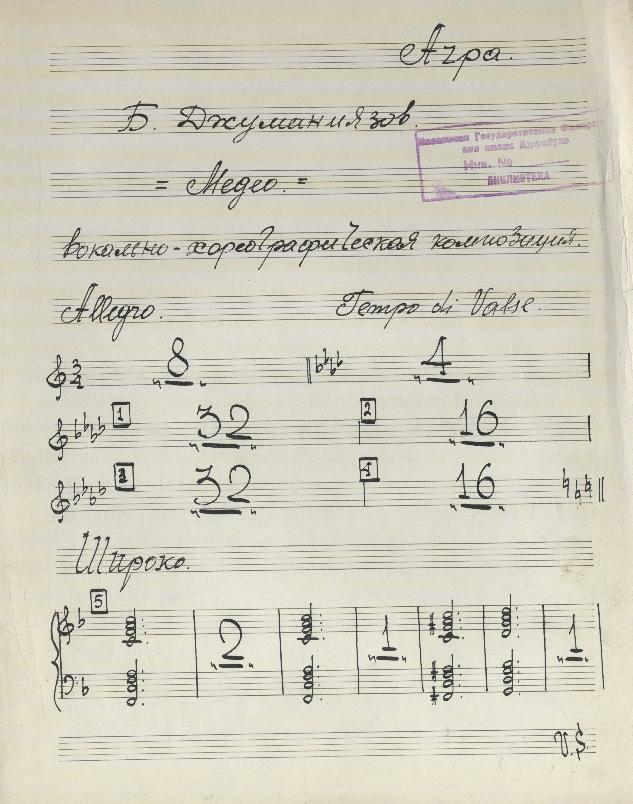 Арфа.
Б. Джуманиязов.
Государственная
имени Джамбула
Инв. №
БИБЛИОТЕКА
= Медео. =
вокально-хореографическая композиция.
Allegro. Tempo di Valse.
3 4 8 4
1 32 2 16
3 32 4 16
Широко.
5 2 1 1
V.S.